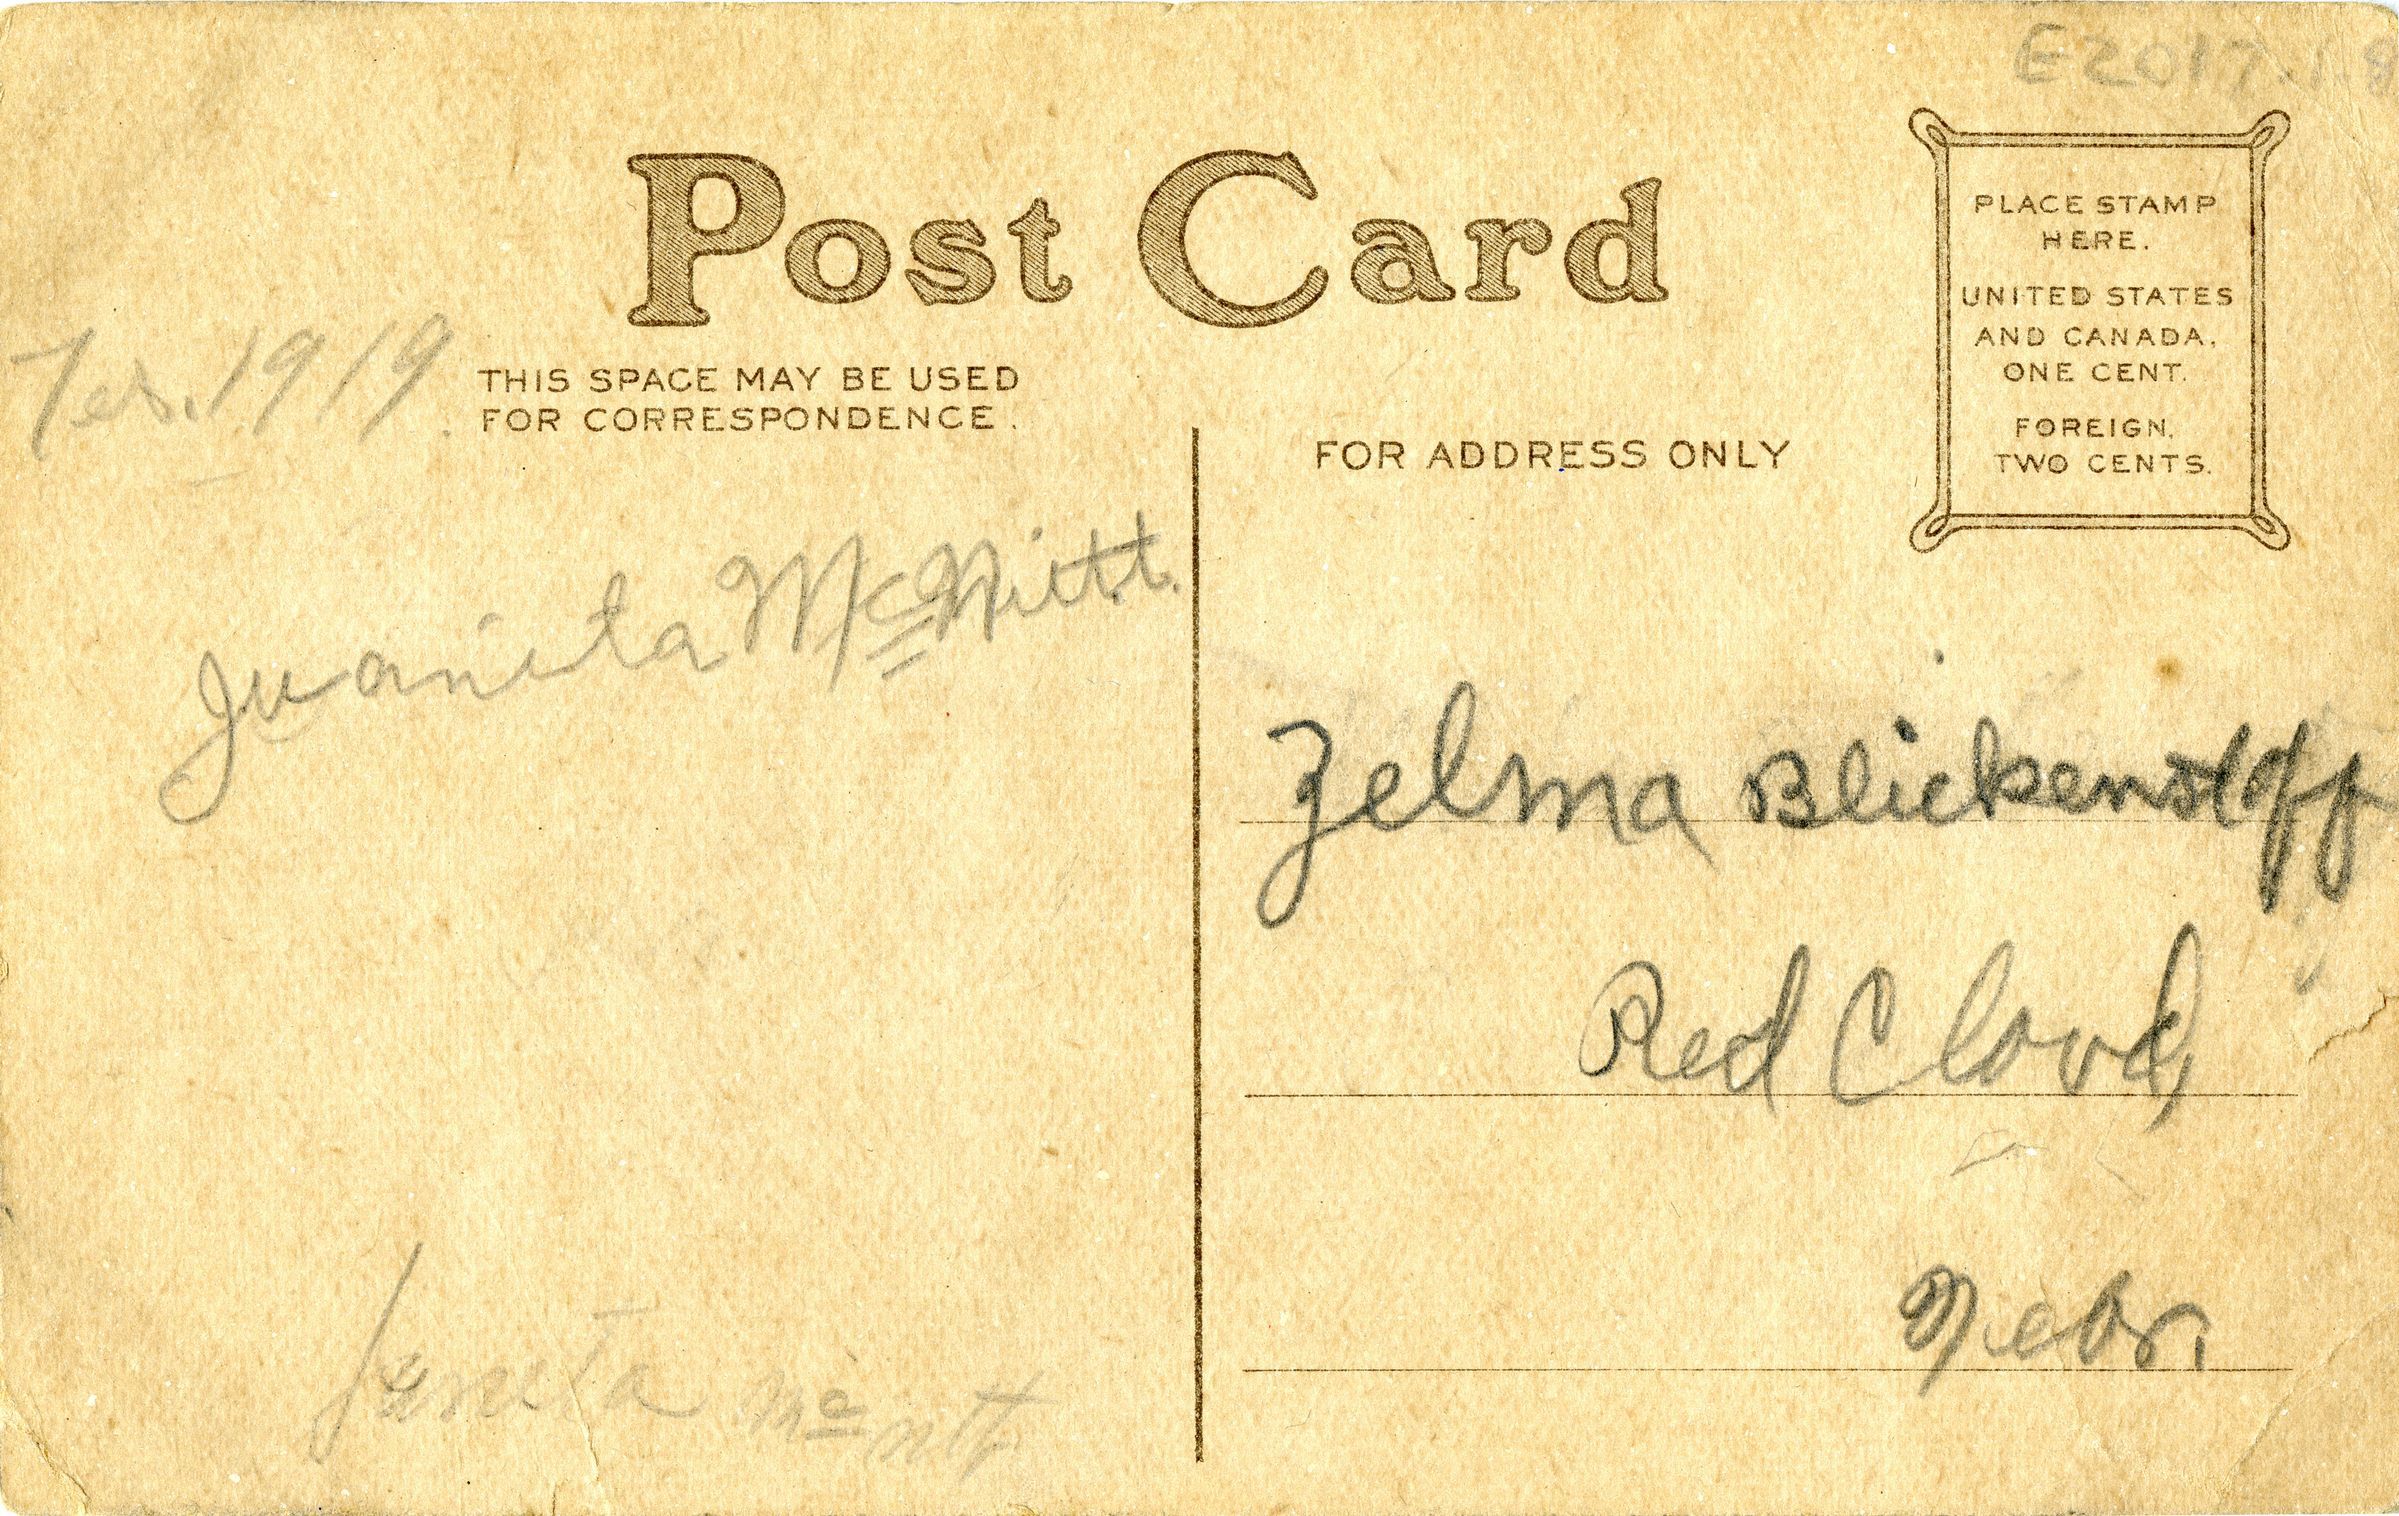 E2017.1.8
Post Card
PLACE STAMP
HERE.
UNITED STATES
AND CANADA,
ONE CENT.
FOREIGN,
TWO CENTS.
Feb. 1919.
THIS SPACE MAY BE USED
FOR CORRESPONDENCE.
FOR ADDRESS ONLY
Juanita McNitt.
Zelma Blickenstoff
Red Cloud,
Nebr.
Juneta McNitt